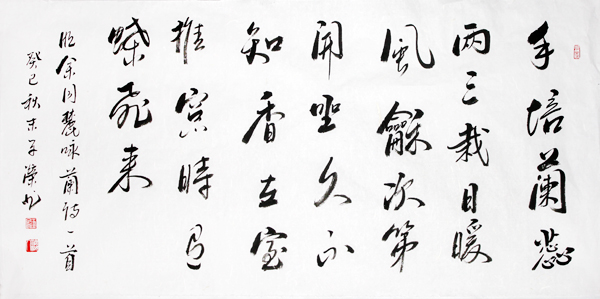 手培蘭蕊
兩三栽日暖
風龢次第
開坐久不
知香在室
推窗時有
蝶飛来
余同麓咏蘭詩一首
癸巳秋末子榮